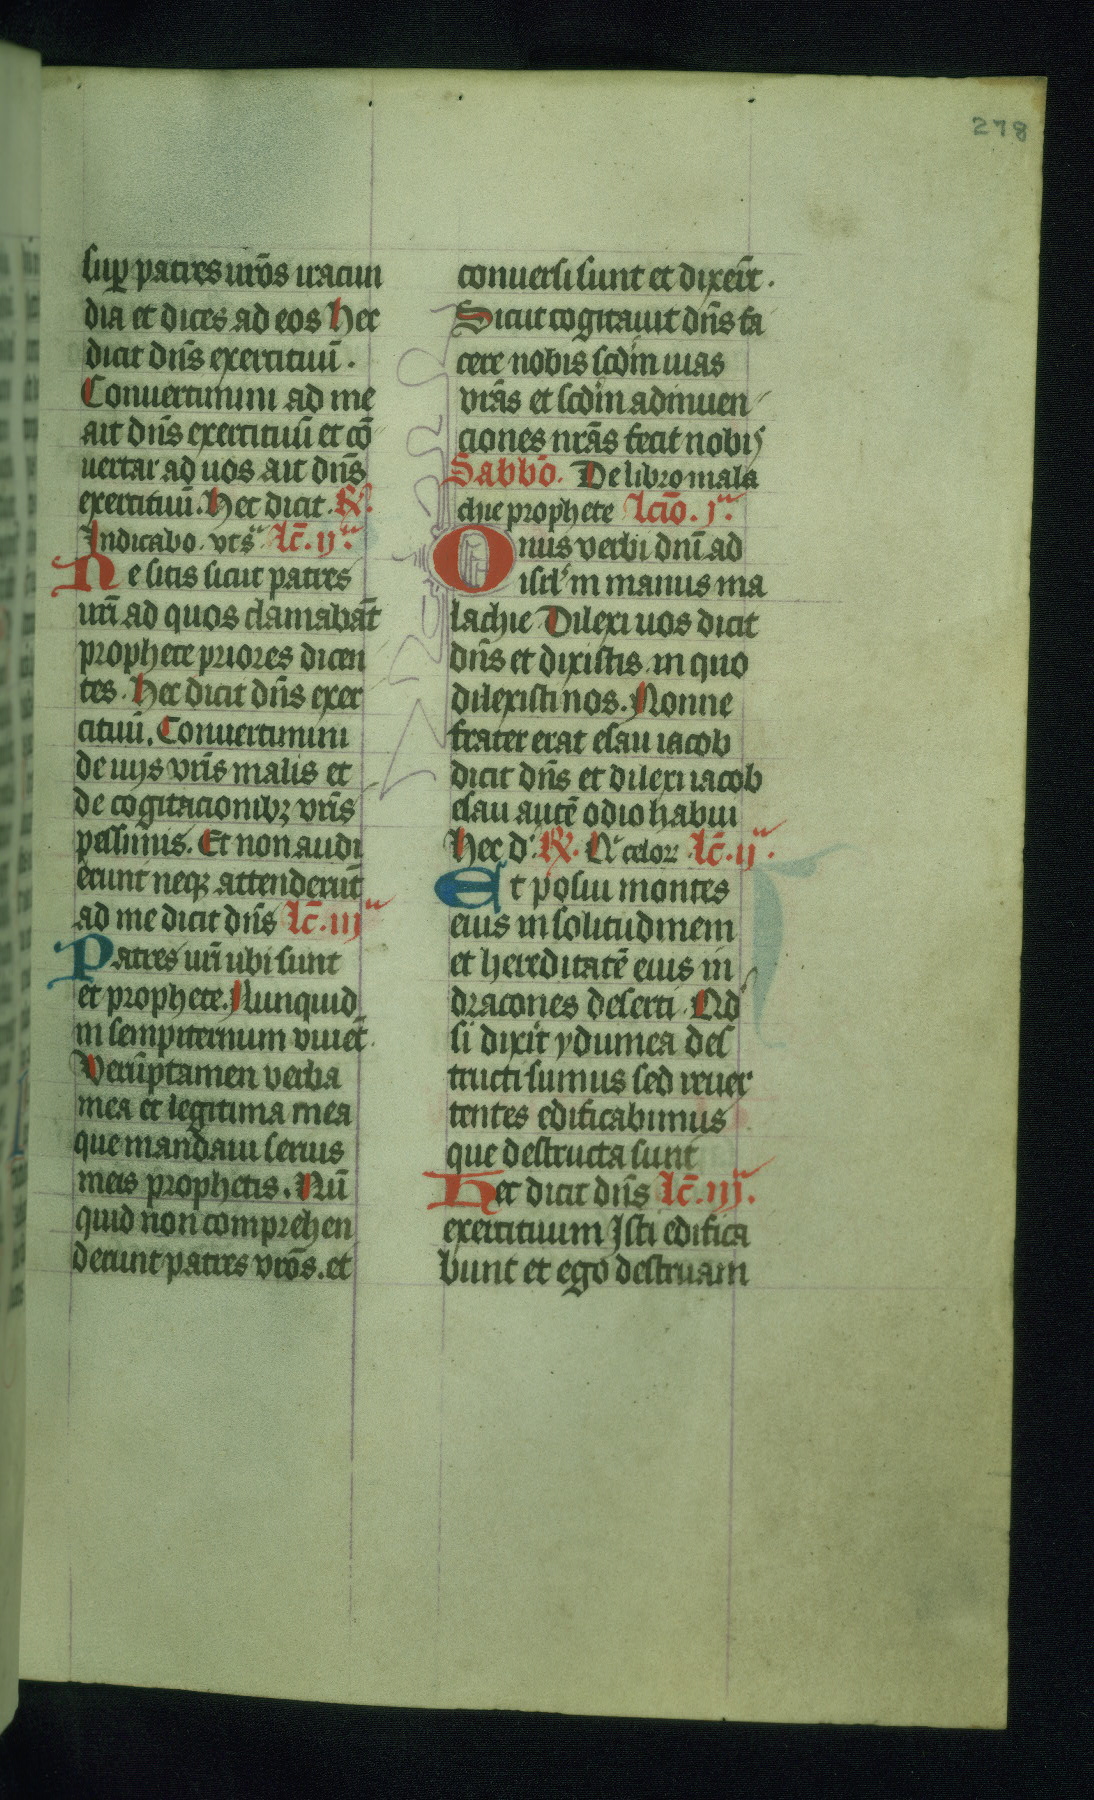 278
sup patres vrōs iracun
dia et dices ad eos Hec
dicit dn̄s exercituū.
Conuertimini ad me
ait dn̄s exercituū et cō
uertar ad uos ait dn̄s
exercituū. Hec dicit. R̸.
Indicabo. vrs̄. lc̄. ij ͣ.
Ne sitis sicut patres
vrī ad quos clamabāt
prophete priores dicen
tes. Hec dicit dn̄s exer
cituū. Conuertimini
de uijs vrīs malis et
de cogitacionibꝫ vrīs
pessimis. Et non audi
erunt neqꝫ attenderūt
ad me dicit dn̄s lc̄. iij ͣ
Patres vrī ubi sunt
et prophete. Nunquid
in sempiternum viuēt.
Verūptamen verba
mea et legitima mea
que mandaui seruis
meis prophetis. Nū
quid non comprehen
derunt patres vrōs. et
conuersi sunt et dixer̄t.
Sicut cogitauit dn̄s fa
cere nobis scdm̄ uias
vrās et scdm̄ adinuen
ciones nrās fecit nobis
Sabbō. De libro mala
chie prophete lcīo. j ͣ.
Onus verbi dn̄i ad
isrl̄ in manus ma
lachie Dilexi uos dicit
dn̄s et dixistis. in quo
dilexisti nos. Nonne
frater erat esau iacob
dicit dn̄s et dilexi iacob
esau autē odio habui
Hec d'. R̸. Aͥ celoꝝ lc̄. ij ͣ.
Et posui montes
eius in solitudinem
et hereditatē eius in
dracones deserti. Qd'
si dixi̇t ydumea des
tructi sumus sed reuer
tentes edificabimus
que destructa sunt
Hec dicit dn̄s lc̄. iij.
exercituum Isti edifica
bunt et ego destruam